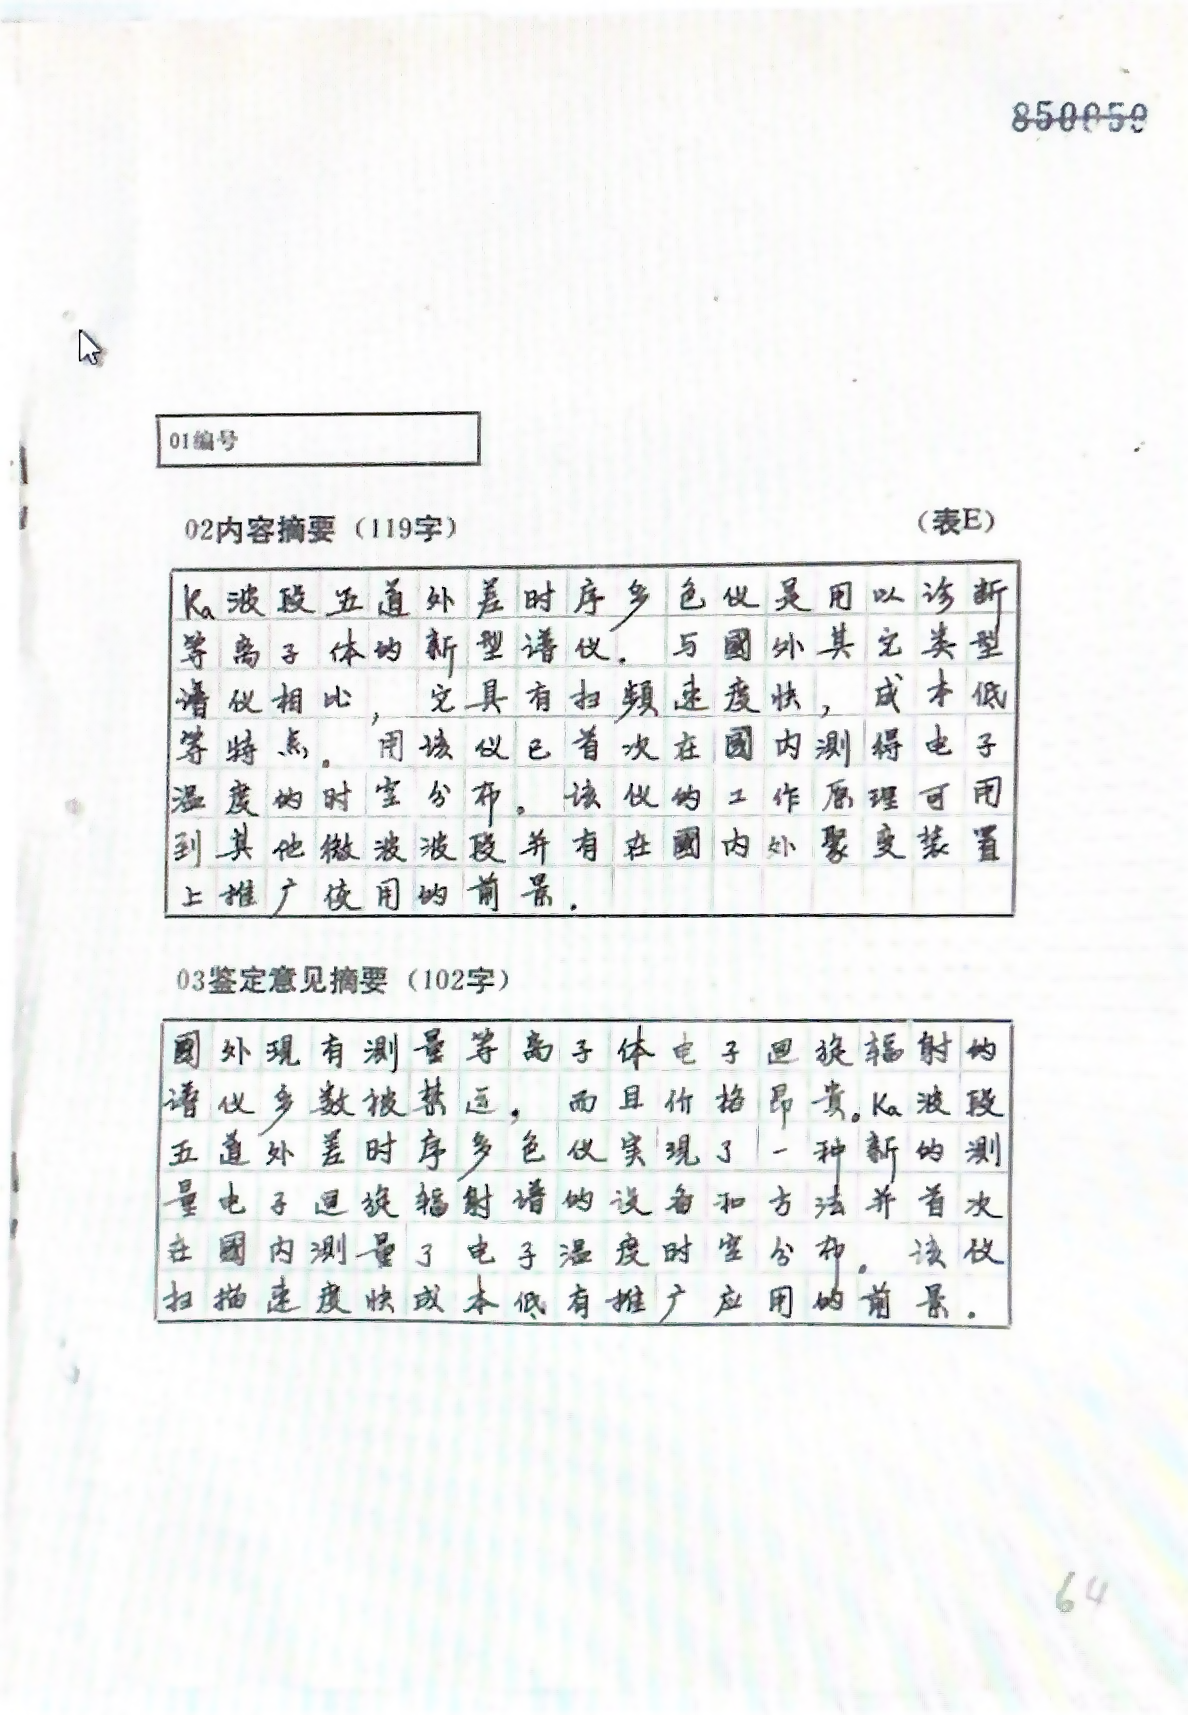 850050
01编号
02内容摘要（119字）
（表E）
Ka波段五道外差时序多色仪是用以诊断
等离子体的新型谱仪。与國外其它类型
谱仪相比，它具有扫频速度快，成本低
等特点。用该仪已首次在國内测得电子
温度的时空分布。该仪的工作原理可用
到其他微波波段并有在國内外聚变装置
上推广使用的前景。
03鉴定意见摘要（102字）
國外现有测量等离子体电子迴旋辐射的
谱仪多数被禁运，而且价格昂贵。Ka波段
五道外差时序多色仪实现了一种新的测
量电子迴旋辐射谱的设备和方法并首次
在國内测量了电子温度时空分布。该仪
扫描速度快成本低有推广应用的前景。
64